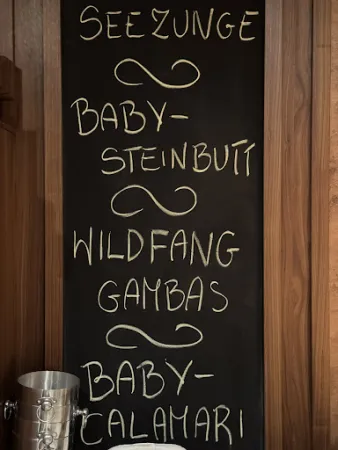 SEEZUNGE
BABY-
STEINBUTT
WILDFANG
GAMBAS
BABY-
CALAMARI